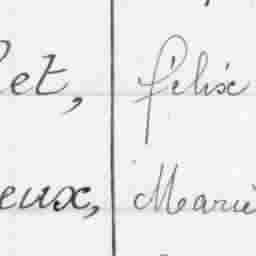 et, félix
eux, Marie